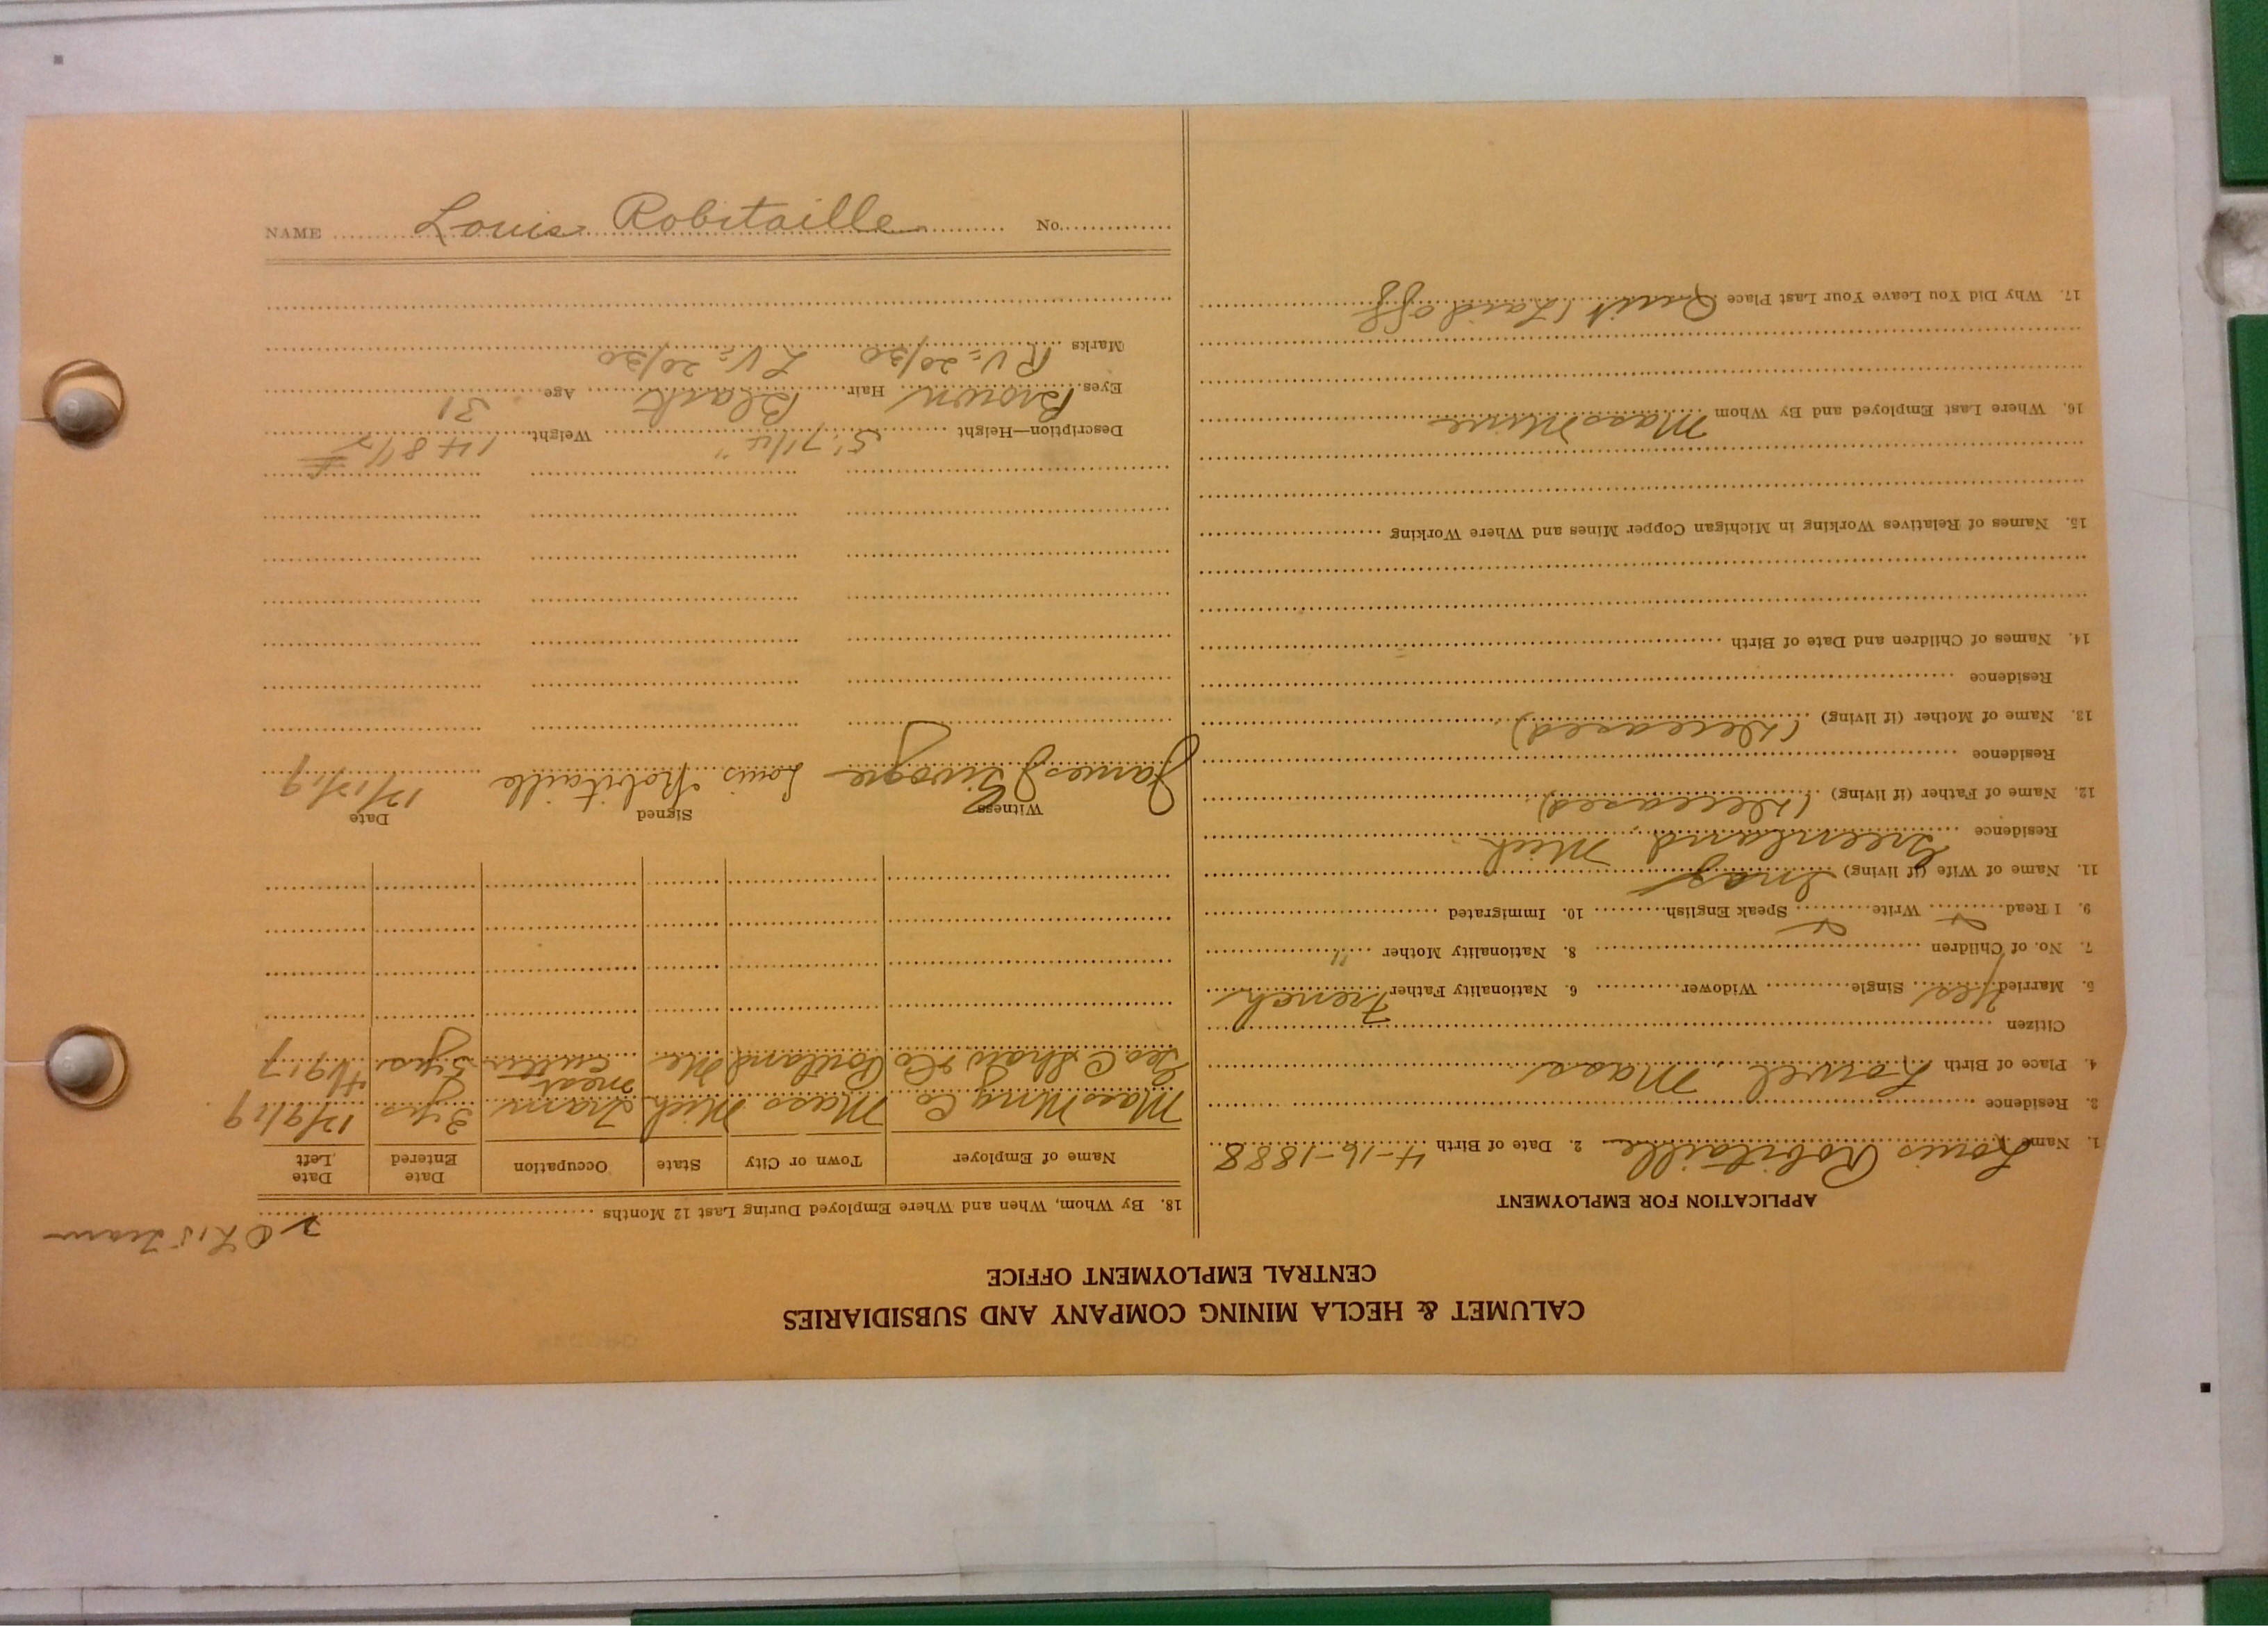 CALUMET & HECLA MINING COMPANY AND SUBSIDIARIES
CENTRAL EMPLOYMENT OFFICE
APPLICATION FOR EMPLOYMENT
1. Name Louis Robitaille 2. Date of Birth 4-16-1888
3. Residence
4. Place of Birth Lowel, Mass
Citizen
5. Married Yes Single Widower 6. Nationality Father French
7. No. of Children 8. Nationality Mother "
9. I Read Write Speak English 10. Immigrated
11. Name of Wife (if living) Inas
Residence Greenland, Mich
12. Name of Father (if living) (Deceased)
Residence
13. Name of Mother (if living) (Deceased)
Residence
14. Names of Children and Date of Birth
15. Names of Relatives Working in Michigan Copper Mines and Where Working
16. Where Last Employed and By Whom Mass Mine
17. Why Did You Leave Your Last Place Quit (Laid off
OK 15 Tram
18. By Whom, When and Where Employed During Last 12 Months
Name of Employer Town or City State Occupation Date Entered Date Left
Mass Mining Co Mass Mich Tram 3 yrs 12/9/19
Geo C Shaw & Co Portland Me meat cutter 5 yrs 1917
Witness Signed Date
James Louis Robitaille 12/12/19
Description—Height 5' 7 1/4" Weight 148 1/2 #
Eyes Brown Hair Black Age 31
Marks R V = 20/30 L V = 20/30
NAME Louis Robitaille No.